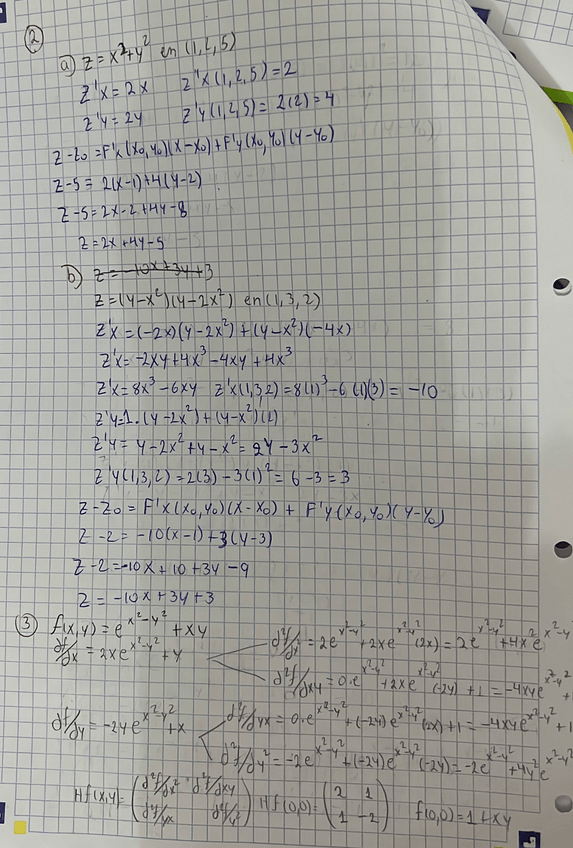 ②
a) z = x²+y² en (1,2,5)
z'x = 2x z''x(1,2,5) = 2
z'y = 2y z'y(1,2,5) = 2(2) = 4
z-z₀ = F'x(x₀,y₀)(x-x₀) + F'y(x₀,y₀)(y-y₀)
z-5 = 2(x-1)+4(y-2)
z-5 = 2x-2+4y-8
z = 2x+4y-5
b) z = -10x+3y+3
z = (y-x²)(y-2x²) en (1,3,2)
z'x = (-2x)(y-2x²)+(y-x²)(-4x)
z'x = -2xy+4x³-4xy+4x³
z'x = 8x³-6xy z'x(1,3,2) = 8(1)³-6(1)(3) = -10
z'y = 1.(y-2x²)+(y-x²)(1)
z'y = y-2x²+y-x² = 2y-3x²
z'y(1,3,2) = 2(3)-3(1)² = 6-3 = 3
z-z₀ = F'x(x₀,y₀)(x-x₀) + F'y(x₀,y₀)(y-y₀)
z-2 = -10(x-1)+3(y-3)
z-2 = -10x+10+3y-9
z = -10x+3y+3
③ f(x,y) = e^(x²-y²) + xy
∂f/∂x = 2xe^(x²-y²) + y
∂²f/∂x² = 2e^(x²-y²) + 2xe^(x²-y²)(2x) = 2e^(x²-y²) + 4x²e^(x²-y
∂²f/∂xy = 0.e^(x²-y²) + 2xe^(x²-y²)(-2y) + 1 = -4xye^(x²-y²) +
∂f/∂y = -2ye^(x²-y²) + x
∂²f/∂yx = 0.e^(x²-y²) + (-2y)e^(x²-y²)(2x) + 1 = -4xye^(x²-y²) + 1
∂²f/∂y² = -2e^(x²-y²) + (-2y)e^(x²-y²)(-2y) = -2e^(x²-y²) + 4y²e^(x²-y
Hf(x,y) = (∂²f/∂x² ∂²f/∂xy Hf(0,0) = (2 1 f(0,0) = 1+xy
∂²f/yx ∂²f/y²) 1 -2)